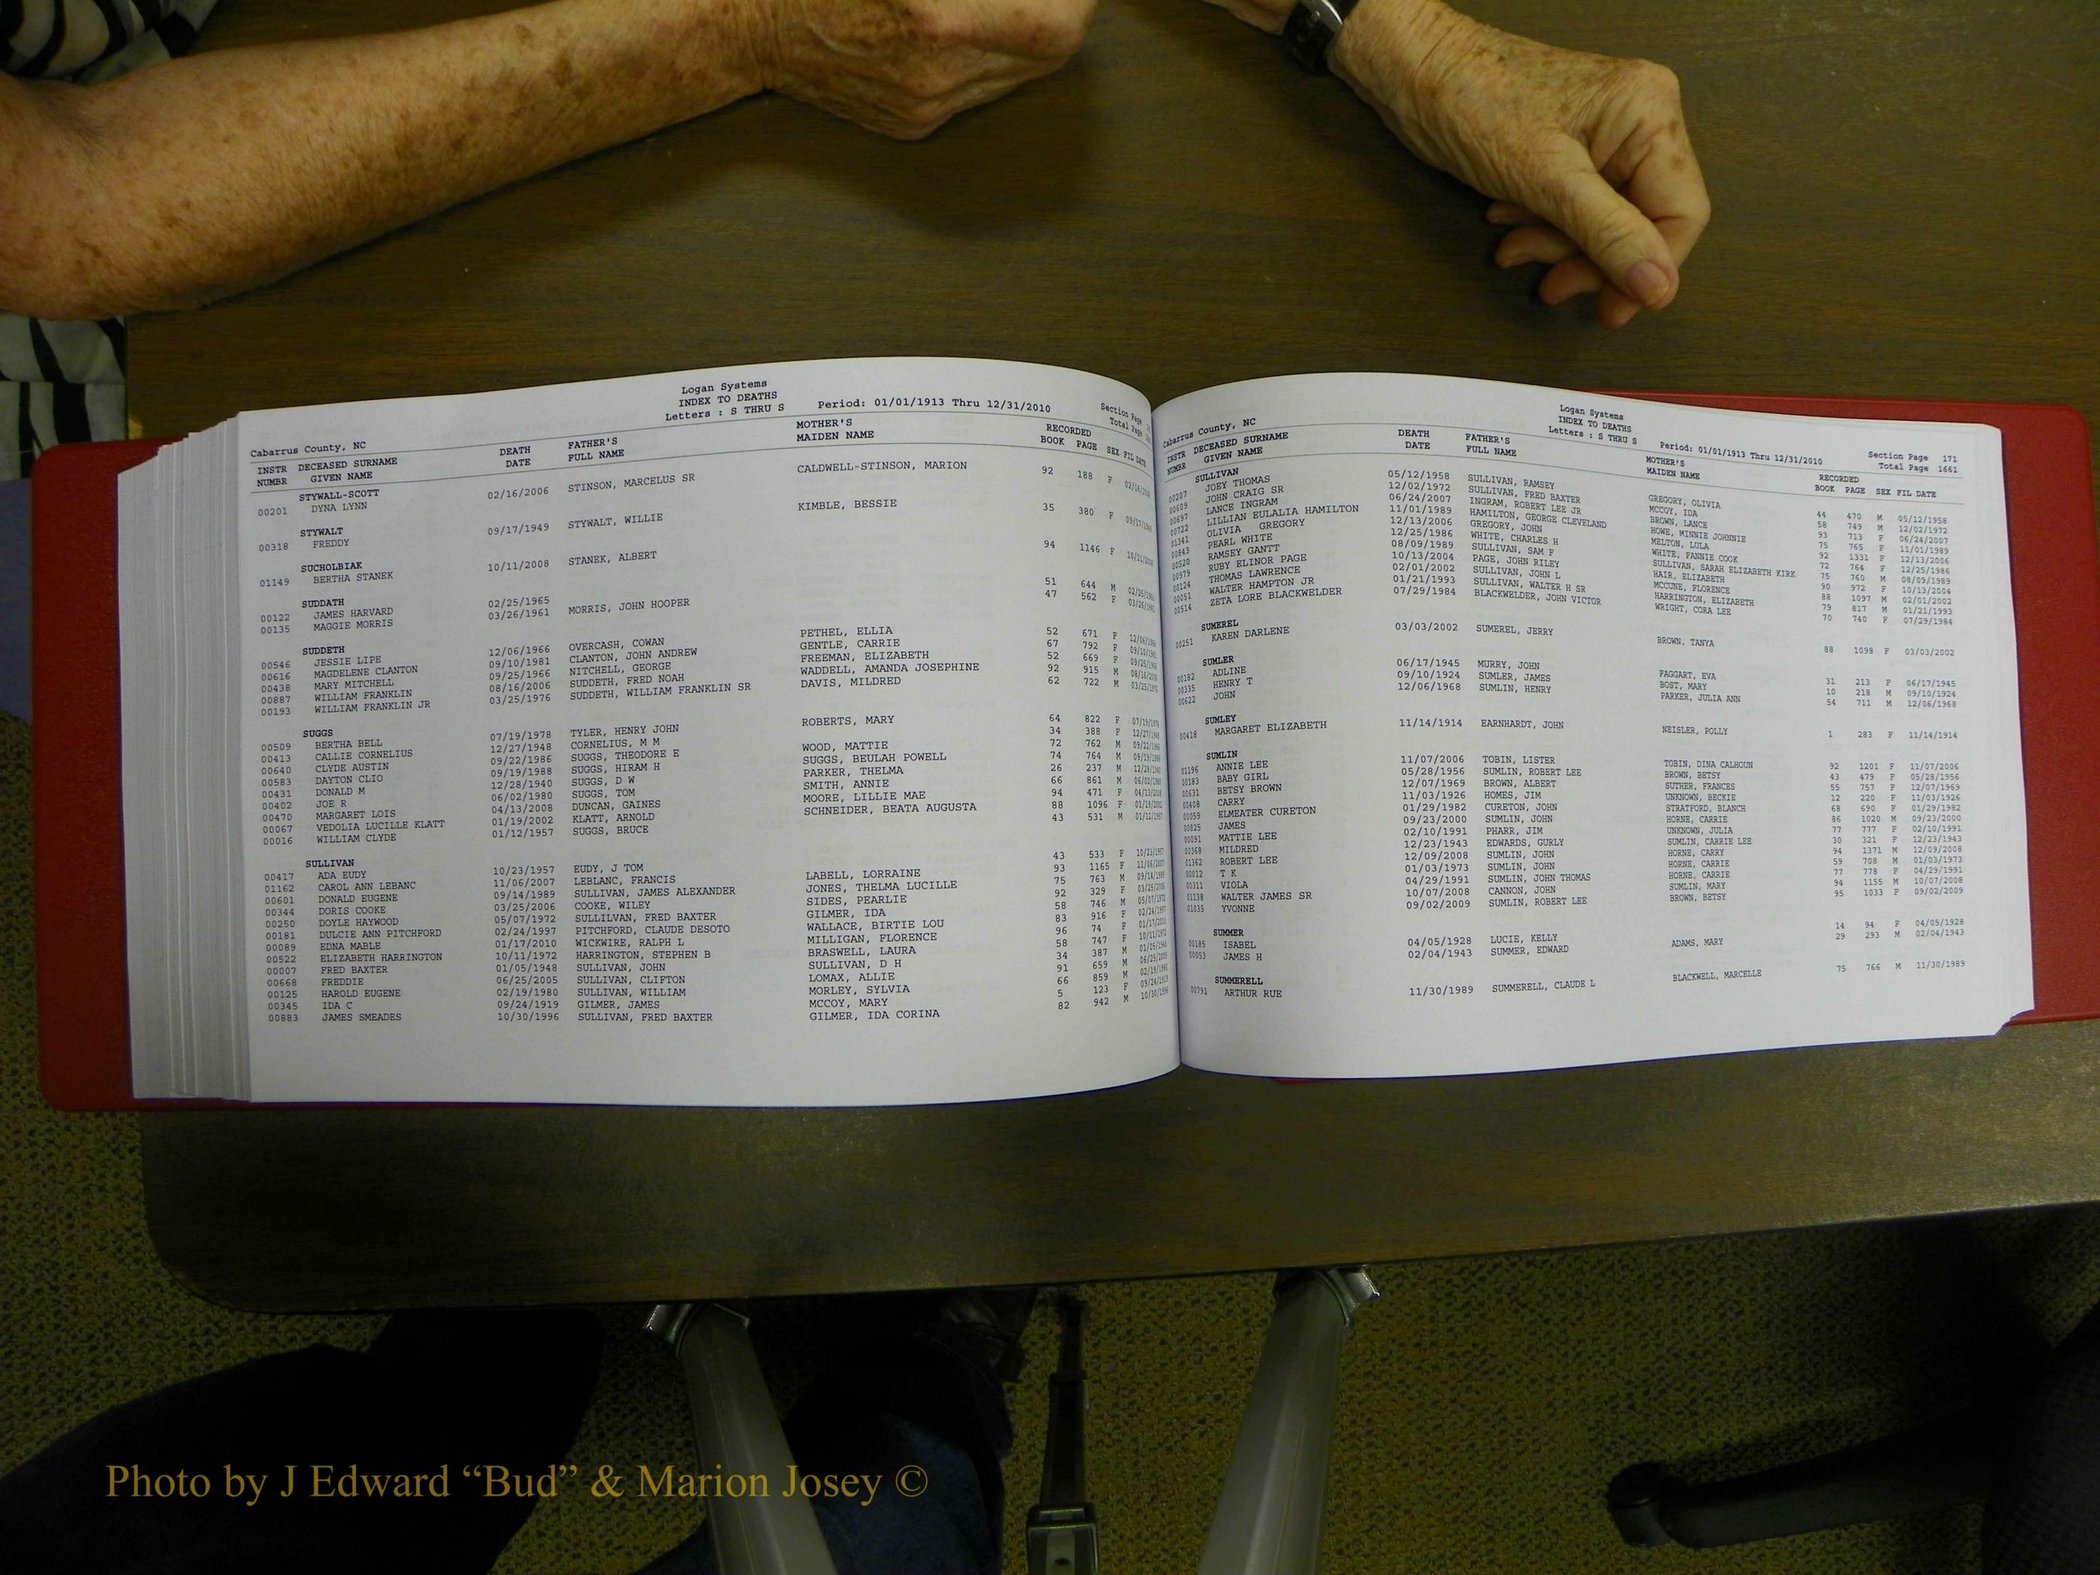 Logan Systems
INDEX TO DEATHS
Letters : S THRU S Period: 01/01/1913 Thru 12/31/2010 Section Page
Cabarrus County, NC Total Page
INSTR DECEASED SURNAME DEATH FATHER'S MOTHER'S RECORDED
NUMBR GIVEN NAME DATE FULL NAME MAIDEN NAME BOOK PAGE SEX FIL DATE
STYWALL-SCOTT
00201 DYNA LYNN 02/16/2006 STINSON, MARCELUS SR CALDWELL-STINSON, MARION 92 188 F
STYWALT
00318 FREDDY 09/17/1949 STYWALT, WILLIE KIMBLE, BESSIE 35 380 F
SUCHOLBIAK
01149 BERTHA STANEK 10/11/2008 STANEK, ALBERT 94 1146 F
SUDDATH
00122 JAMES HARVARD 02/25/1965 51 644 M
00135 MAGGIE MORRIS 03/26/1961 MORRIS, JOHN HOOPER 47 562 F
SUDDETH
00546 JESSIE LIPE 12/06/1966 OVERCASH, COWAN PETHEL, ELLIA 52 671 F
00616 MAGDELENE CLANTON 09/10/1981 CLANTON, JOHN ANDREW GENTLE, CARRIE 67 792 F
00438 MARY MITCHELL 09/25/1966 NITCHELL, GEORGE FREEMAN, ELIZABETH 52 669 F
00887 WILLIAM FRANKLIN 08/16/2006 SUDDETH, FRED NOAH WADDELL, AMANDA JOSEPHINE 92 915 M
00193 WILLIAM FRANKLIN JR 03/25/1976 SUDDETH, WILLIAM FRANKLIN SR DAVIS, MILDRED 62 722 M
SUGGS
00509 BERTHA BELL 07/19/1978 TYLER, HENRY JOHN ROBERTS, MARY 64 822 F
00413 CALLIE CORNELIUS 12/27/1948 CORNELIUS, M M 34 388 F
00640 CLYDE AUSTIN 09/22/1986 SUGGS, THEODORE E WOOD, MATTIE 72 762 M
00583 DAYTON CLIO 09/19/1988 SUGGS, HIRAM H SUGGS, BEULAH POWELL 74 764 M
00431 DONALD M 12/28/1940 SUGGS, D W PARKER, THELMA 26 237 M
00402 JOE R 06/02/1980 SUGGS, TOM SMITH, ANNIE 66 861 M
00470 MARGARET LOIS 04/13/2008 DUNCAN, GAINES MOORE, LILLIE MAE 94 471 F
00067 VEDOLIA LUCILLE KLATT 01/19/2002 KLATT, ARNOLD SCHNEIDER, BEATA AUGUSTA 88 1096 F
00016 WILLIAM CLYDE 01/12/1957 SUGGS, BRUCE 43 531 M
SULLIVAN
00417 ADA EUDY 10/23/1957 EUDY, J TOM 43 533 F
01162 CAROL ANN LEBANC 11/06/2007 LEBLANC, FRANCIS LABELL, LORRAINE 93 1165 F
00601 DONALD EUGENE 09/14/1989 SULLIVAN, JAMES ALEXANDER JONES, THELMA LUCILLE 75 763 M
00344 DORIS COOKE 03/25/2006 COOKE, WILEY SIDES, PEARLIE 92 329 F
00250 DOYLE HAYWOOD 05/07/1972 SULLILVAN, FRED BAXTER GILMER, IDA 58 746 M
00181 DULCIE ANN PITCHFORD 02/24/1997 PITCHFORD, CLAUDE DESOTO WALLACE, BIRTIE LOU 83 916 F
00089 EDNA MABLE 01/17/2010 WICKWIRE, RALPH L MILLIGAN, FLORENCE 96 74 F
00522 ELIZABETH HARRINGTON 10/11/1972 HARRINGTON, STEPHEN B BRASWELL, LAURA 58 747 F
00007 FRED BAXTER 01/05/1948 SULLIVAN, JOHN SULLIVAN, D H 34 387 M
00668 FREDDIE 06/25/2005 SULLIVAN, CLIFTON LOMAX, ALLIE 91 659 M
00125 HAROLD EUGENE 02/19/1980 SULLIVAN, WILLIAM MORLEY, SYLVIA 66 859 M
00345 IDA C 09/24/1919 GILMER, JAMES MCCOY, MARY 5 123 F
00883 JAMES SMEADES 10/30/1996 SULLIVAN, FRED BAXTER GILMER, IDA CORINA 82 942 M
Logan Systems
INDEX TO DEATHS
Letters : S THRU S Period: 01/01/1913 Thru 12/31/2010 Section Page 171
Cabarrus County, NC Total Page 1661
INSTR DECEASED SURNAME DEATH FATHER'S MOTHER'S RECORDED
NUMBR GIVEN NAME DATE FULL NAME MAIDEN NAME BOOK PAGE SEX FIL DATE
SULLIVAN
00207 JOEY THOMAS 05/12/1958 SULLIVAN, RAMSEY GREGORY, OLIVIA 44 470 M 05/12/1958
00609 JOHN CRAIG SR 12/02/1972 SULLIVAN, FRED BAXTER MCCOY, IDA 58 749 M 12/02/1972
00697 LANCE INGRAM 06/24/2007 INGRAM, ROBERT LEE JR BROWN, LANCE 93 713 F 06/24/2007
00722 LILLIAN EULALIA HAMILTON 11/01/1989 HAMILTON, GEORGE CLEVELAND HOWE, MINNIE JOHNNIE 75 765 F 11/01/1989
01341 OLIVIA GREGORY 12/13/2006 GREGORY, JOHN MELTON, LULA 92 1331 F 12/13/2006
00843 PEARL WHITE 12/25/1986 WHITE, CHARLES H WHITE, FANNIE COOK 72 764 F 12/25/1986
00520 RAMSEY GANTT 08/09/1989 SULLIVAN, SAM F SULLIVAN, SARAH ELIZABETH KIRK 75 760 M 08/09/1989
00979 RUBY ELINOR PAGE 10/13/2004 PAGE, JOHN RILEY HAIR, ELIZABETH 90 972 F 10/13/2004
00124 THOMAS LAWRENCE 02/01/2002 SULLIVAN, JOHN L MCCUNE, FLORENCE 88 1097 M 02/01/2002
00051 WALTER HAMPTON JR 01/21/1993 SULLIVAN, WALTER H SR HARRINGTON, ELIZABETH 79 817 M 01/21/1993
00514 ZETA LORE BLACKWELDER 07/29/1984 BLACKWELDER, JOHN VICTOR WRIGHT, CORA LEE 70 740 F 07/29/1984
SUMEREL
00251 KAREN DARLENE 03/03/2002 SUMEREL, JERRY BROWN, TANYA 88 1098 F 03/03/2002
SUMLER
00182 ADLINE 06/17/1945 MURRY, JOHN FAGGART, EVA 31 213 F 06/17/1945
00335 HENRY T 09/10/1924 SUMLER, JAMES BOST, MARY 10 218 M 09/10/1924
00622 JOHN 12/06/1968 SUMLIN, HENRY PARKER, JULIA ANN 54 711 M 12/06/1968
SUMLEY
00418 MARGARET ELIZABETH 11/14/1914 EARNHARDT, JOHN NEISLER, POLLY 1 283 F 11/14/1914
SUMLIN
01196 ANNIE LEE 11/07/2006 TOBIN, LISTER TOBIN, DINA CALHOUN 92 1201 F 11/07/2006
00183 BABY GIRL 05/28/1956 SUMLIN, ROBERT LEE BROWN, BETSY 43 479 F 05/28/1956
00631 BETSY BROWN 12/07/1969 BROWN, ALBERT SUTHER, FRANCES 55 757 F 12/07/1969
00408 CARRY 11/03/1926 HOMES, JIM UNKNOWN, BECKIE 12 220 F 11/03/1926
00059 ELMEATER CURETON 01/29/1982 CURETON, JOHN STRATFORD, BLANCH 68 690 F 01/29/1982
00825 JAMES 09/23/2000 SUMLIN, JOHN HORNE, CARRIE 86 1020 M 09/23/2000
00091 MATTIE LEE 02/10/1991 PHARR, JIM UNKNOWN, JULIA 77 777 F 02/10/1991
00368 MILDRED 12/23/1943 EDWARDS, GURLY SUMLIN, CARRIE LEE 30 321 F 12/23/1943
01362 ROBERT LEE 12/09/2008 SUMLIN, JOHN HORNE, CARRY 94 1371 M 12/09/2008
00012 T K 01/03/1973 SUMLIN, JOHN HORNE, CARRIE 59 708 M 01/03/1973
00311 VIOLA 04/29/1991 SUMLIN, JOHN THOMAS HORNE, CARRIE 77 778 F 04/29/1991
01138 WALTER JAMES SR 10/07/2008 CANNON, JOHN SUMLIN, MARY 94 1155 M 10/07/2008
01035 YVONNE 09/02/2009 SUMLIN, ROBERT LEE BROWN, BETSY 95 1033 F 09/02/2009
SUMMER
00185 ISABEL 04/05/1928 LUCIE, KELLY 14 94 F 04/05/1928
00053 JAMES H 02/04/1943 SUMMER, EDWARD ADAMS, MARY 29 293 M 02/04/1943
SUMMERELL
00791 ARTHUR RUE 11/30/1989 SUMMERELL, CLAUDE L BLACKWELL, MARCELLE 75 766 M 11/30/1989
Photo by J Edward “Bud” & Marion Josey ©